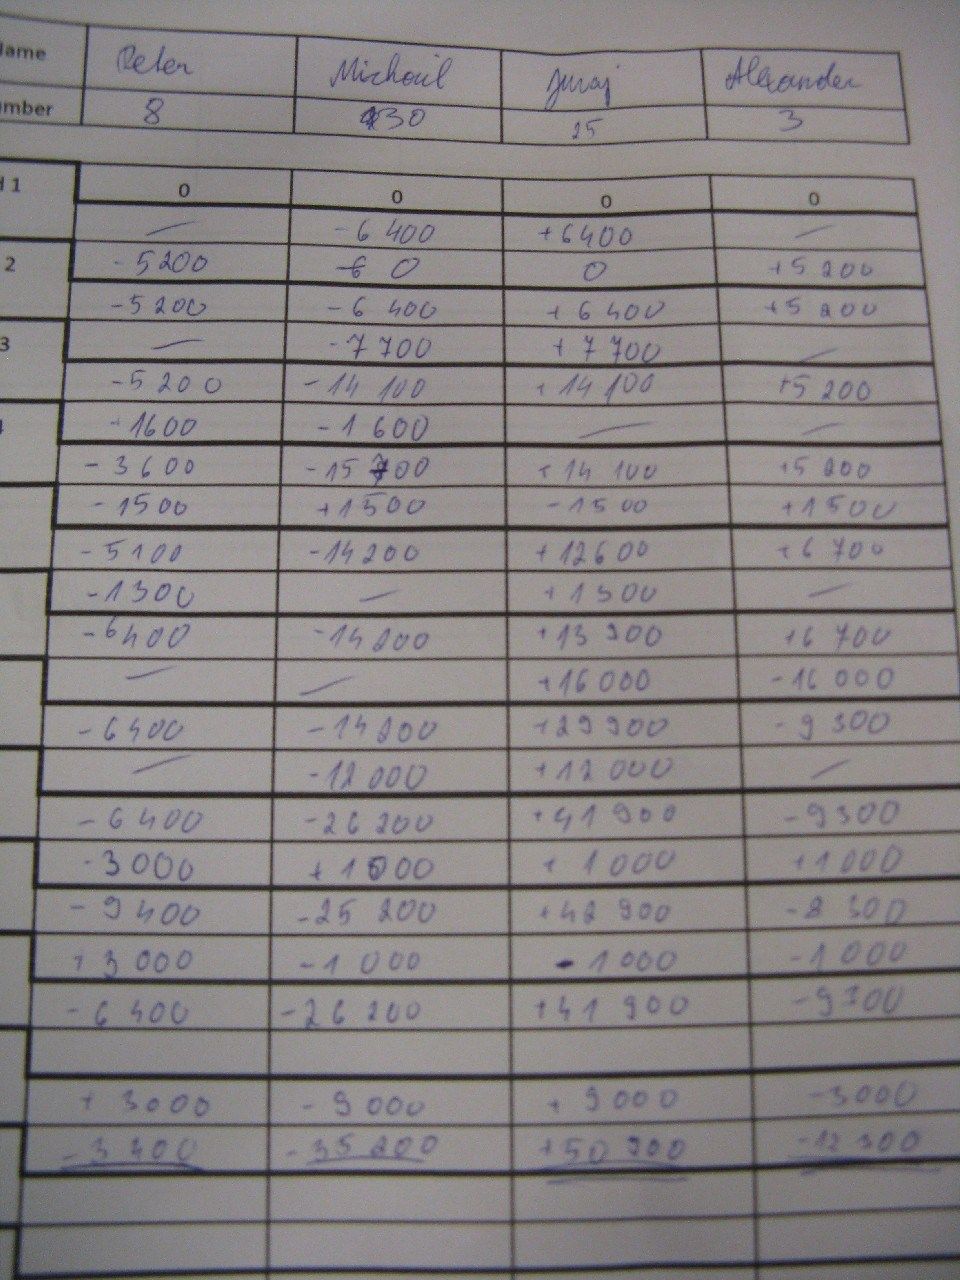 ame Peter Michail Juraj Alexander
mber 8 30 25 3
1 0 0 0 0
— -6 400 +6400 —
2 -5200 0 0 +5 200
-5200 -6 400 +6400 +5 200
3 — -7 700 +7 700 —
-5 200 -14 100 +14 100 +5 200
+1600 -1 600 — —
-3600 -15 700 +14 100 +5 200
-1500 +1500 -1500 +1500
-5100 -14200 +12600 +6 700
-1300 — +1300 —
-6400 -14200 +13 900 +6 700
— — +16000 -16 000
-6400 -14200 +29900 -9 300
— -12 000 +12 000 —
-6400 -26 200 +41 900 -9300
-3000 +1000 +1000 +1000
-9400 -25 200 +42 900 -8 300
+3 000 -1 000 -1000 -1 000
-6400 -26 200 +41 900 -9300
+3000 -9 000 +9000 -3000
-3400 -35200 +50 900 -12 300